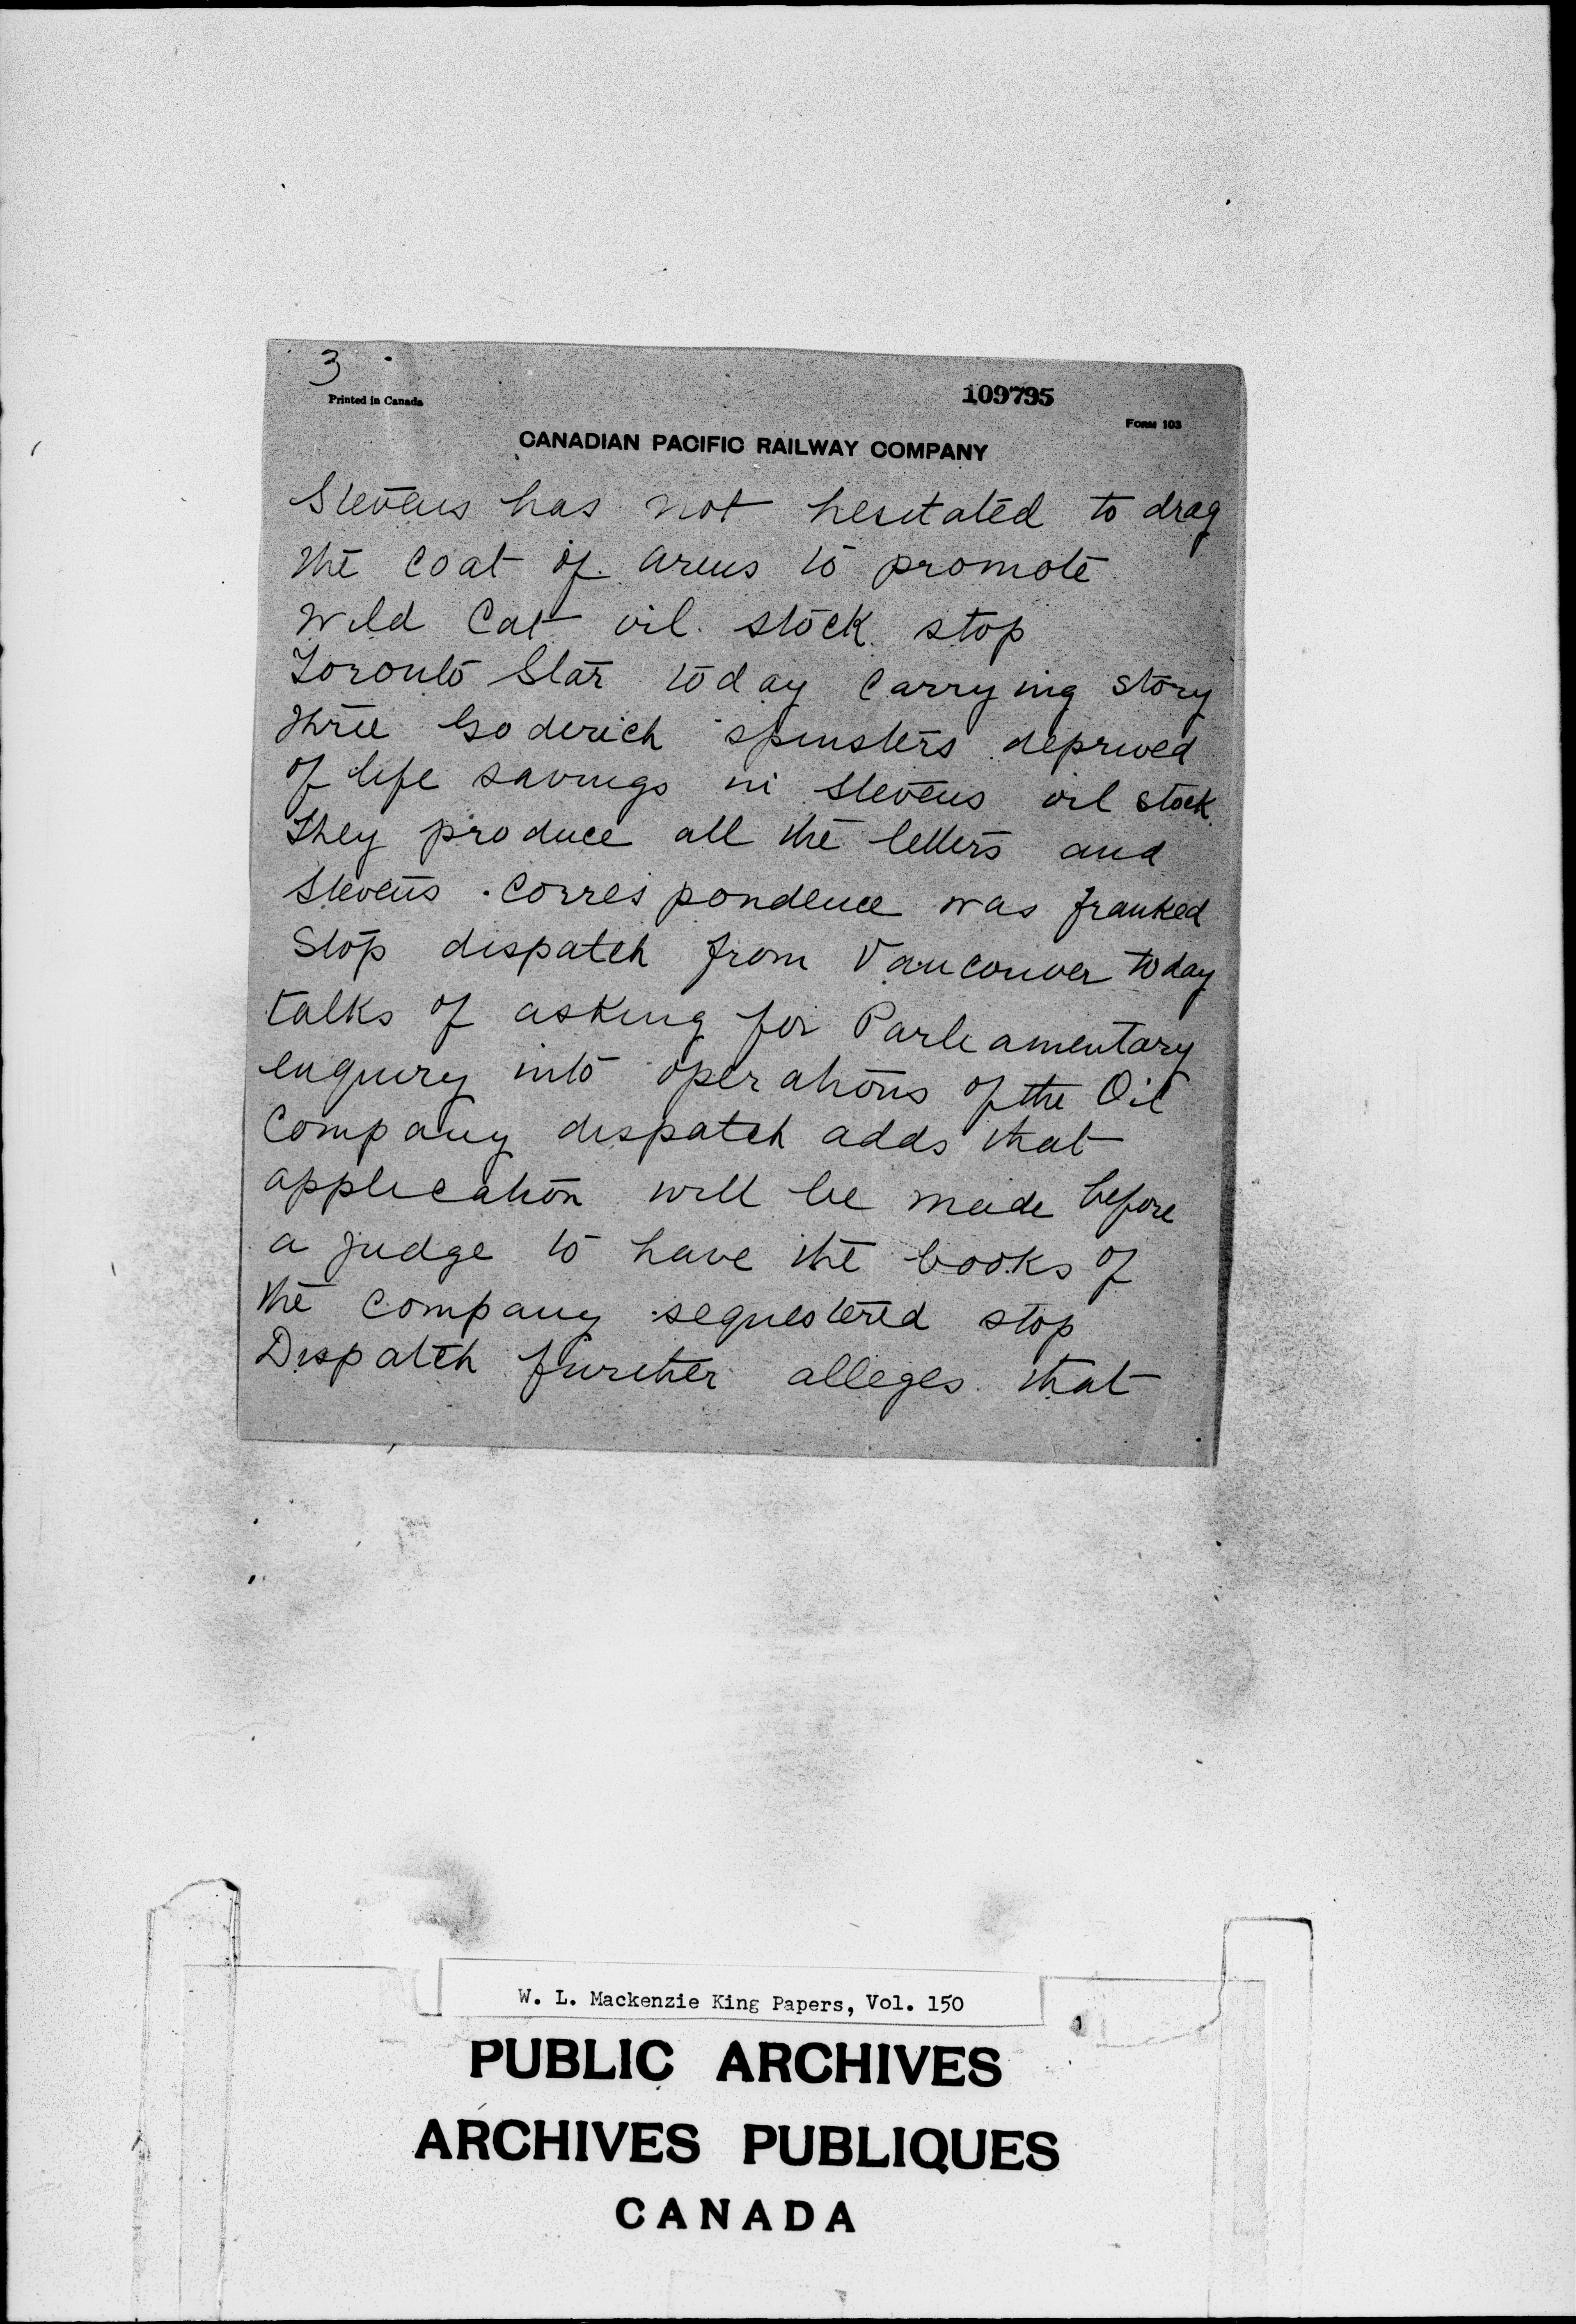 3
Printed in Canada
109795
FORM 103
CANADIAN PACIFIC RAILWAY COMPANY
Stevens has not hesitated to drag
the coat of arms to promote
Wild Cat oil stock stop
Toronto Star today carrying story
three Goderich spinsters deprived
of life savings in Stevens oil stock.
They produce all the letters and
Stevens correspondence was franked
Stop dispatch from Vancouver today
talks of asking for Parliamentary
enquiry into operations of the Oil
Company dispatch adds that
application will be made before
a judge to have the books of
the company sequestered stop
Dispatch further alleges that
W. L. Mackenzie King Papers, Vol. 150
PUBLIC ARCHIVES
ARCHIVES PUBLIQUES
CANADA